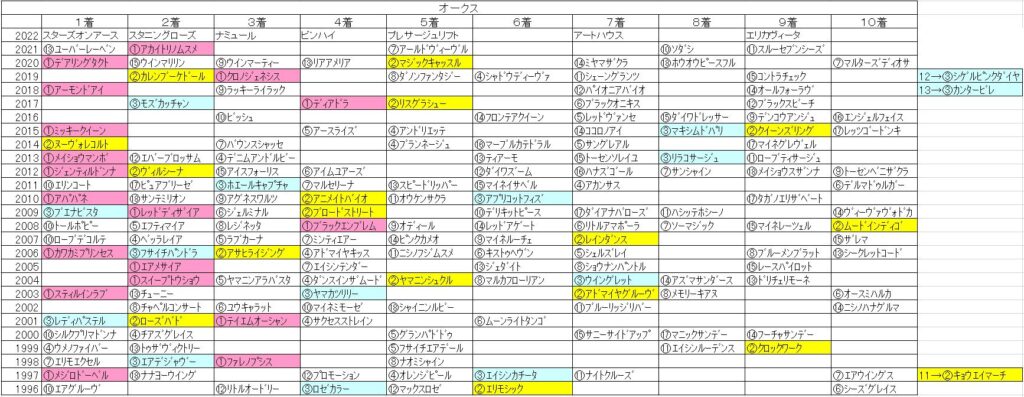 オークス
1着 2着 3着 4着 5着 6着 7着 8着 9着 10着
2022 スターズオンアース スタニングローズ ナミュール ピンハイ プレサージュリフト アートハウス エリカヴィータ
2021 ⑬ユーバーレーベン ①アカイトリノムスメ ⑦アールドヴィーヴル ⑩ソダシ ⑪スルーセブンシーズ
2020 ①デアリングタクト ⑮ウインマリリン ⑨ウインマイティー ⑬リアアメリア ②マジックキャッスル ⑭ミヤマザクラ ⑱ホウオウピースフル ⑦マルターズディオサ
2019 ②カレンブーケドール ①クロノジェネシス ⑧ダノンファンタジー ④シャドウディーヴァ ⑪シェーングランツ ⑮コントラチェック 12→③シゲルピンクダイヤ
2018 ①アーモンドアイ ⑨ラッキーライラック ⑫パイオニアバイオ ⑭オールフォーラヴ 13→③カンタービレ
2017 ③モズカッチャン ①ディアドラ ②リスグラシュー ⑥ブラックオニキス ⑫ブラックスビーチ
2016 ⑩ビッシュ ⑭フロンテアクイーン ⑤レッドヴァンセ ⑮ダイワドレッサー ⑨デンコウアンジュ ⑯エンジェルフェイス
2015 ①ミッキークイーン ⑤アースライズ ④アンドリエッテ ⑭ココロノアイ ③マキシムドパリ ②クイーンズリング ⑰レッツゴードンキ
2014 ②ヌーヴォレコルト ⑦バウンスシャッセ ④ブランネージュ ⑯マーブルカテドラル ⑤サングレアル ⑰マイネグレヴィル
2013 ①メイショウマンボ ⑫エバーブロッサム ④デニムアンドルビー ⑬ティアーモ ⑮トーセンソレイユ ③リラコサージュ ⑪ローブティサージュ
2012 ①ジェンティルドンナ ②ヴィルシーナ ⑮アイスフォーリス ⑥アイムユアーズ ⑫ダイワズーム ⑯ハナズゴール ⑦サンシャイン ⑱メイショウスザンナ ⑨トーセンベニザクラ
2011 ⑩エリンコート ⑰ピュアブリーゼ ③ホエールキャプチャ ⑦マルセリーナ ⑬スピードリッパー ⑮マイネイサベル ④アカンサス ⑥デルマドゥルガー
2010 ①アパパネ ⑱サンテミリオン ⑨アグネスワルツ ②アニメイトバイオ ⑪オウケンサクラ ③アプリコットフィズ ⑰タガノエリザベート
2009 ③ブエナビスタ ①レッドディザイア ⑥ジェルミナル ②ブロードストリート ⑩デリキットピース ⑰ダイアナバローズ ⑪ハシッテホシーノ ⑭ヴィーヴァヴォドカ
2008 ⑩トールポピー ⑤エフティマイア ⑧レジネッタ ①ブラックエンブレム ⑨オディール ⑭レッドアゲート ⑥リトルアマポーラ ⑦ソーマジック ⑮マイネレーツェル ②ムードインディゴ
2007 ⑩ローブデコルテ ④ベッラレイア ⑤ラブカーナ ⑦ミンティエアー ⑭ピンクカメオ ⑨マイネルーチェ ②レインダンス ⑮ザレマ
2006 ①カワカミプリンセス ③フサイチパンドラ ②アサヒライジング ④アドマイヤキッス ⑪ニシノフジムスメ ⑥キストゥヘヴン ⑤シェルズレイ ⑧ブルーメンブラット ⑬シークレットコード
2005 ①エアメサイア ⑦エイシンテンダー ⑬ジェダイト ⑧ショウナンパントル ⑮レースパイロット
2004 ①スイープトウショウ ⑤ヤマニンアラバスタ ④ダンスインザムード ②ヤマニンシュクル ⑧マルカフローリアン ③ウイングレット ⑭アズマサンダース ⑬ドリチェリモーネ
2003 ①スティルインラブ ⑬チューニー ③ヤマカツリリー ②アドマイヤグルーヴ ⑧メモリーキアヌ ⑥オースミハルカ
2002 ⑧チャペルコンサート ③ユウキャラット ⑩マイネミモーゼ ⑱シャイニンルビー ⑪ブルーリッジリバー ⑭ニシノハナグルマ
2001 ③レディパステル ②ローズバド ①テイエムオーシャン ④サクセスストレイン ⑥ムーンライトタンゴ
2000 ⑩シルクプリマドンナ ④チアズグレイス ⑤グランパドドゥ ⑮サニーサイドアップ ⑰マニックサンデー ⑭フーチャサンデー
1999 ④ウメノファイバー ⑬トゥザヴィクトリー ⑤フサイチエアデール ⑪エイシンルーデンス ②クロックワーク
1998 ⑦エリモエクセル ③エアデジャヴー ①ファレノプシス ⑧ナオミシャイン
1997 ①メジロドーベル ⑱ナナヨーウイング ⑫プロモーション ④オレンジピール ③エイシンカチータ ⑪ナイトクルーズ ⑦エアウイングス 11→②キョウエイマーチ
1996 ⑩エアグルーヴ ⑫リトルオードリー ③ロゼカラー ⑫マックスロゼ ②エリモシック ⑥シーズグレイス